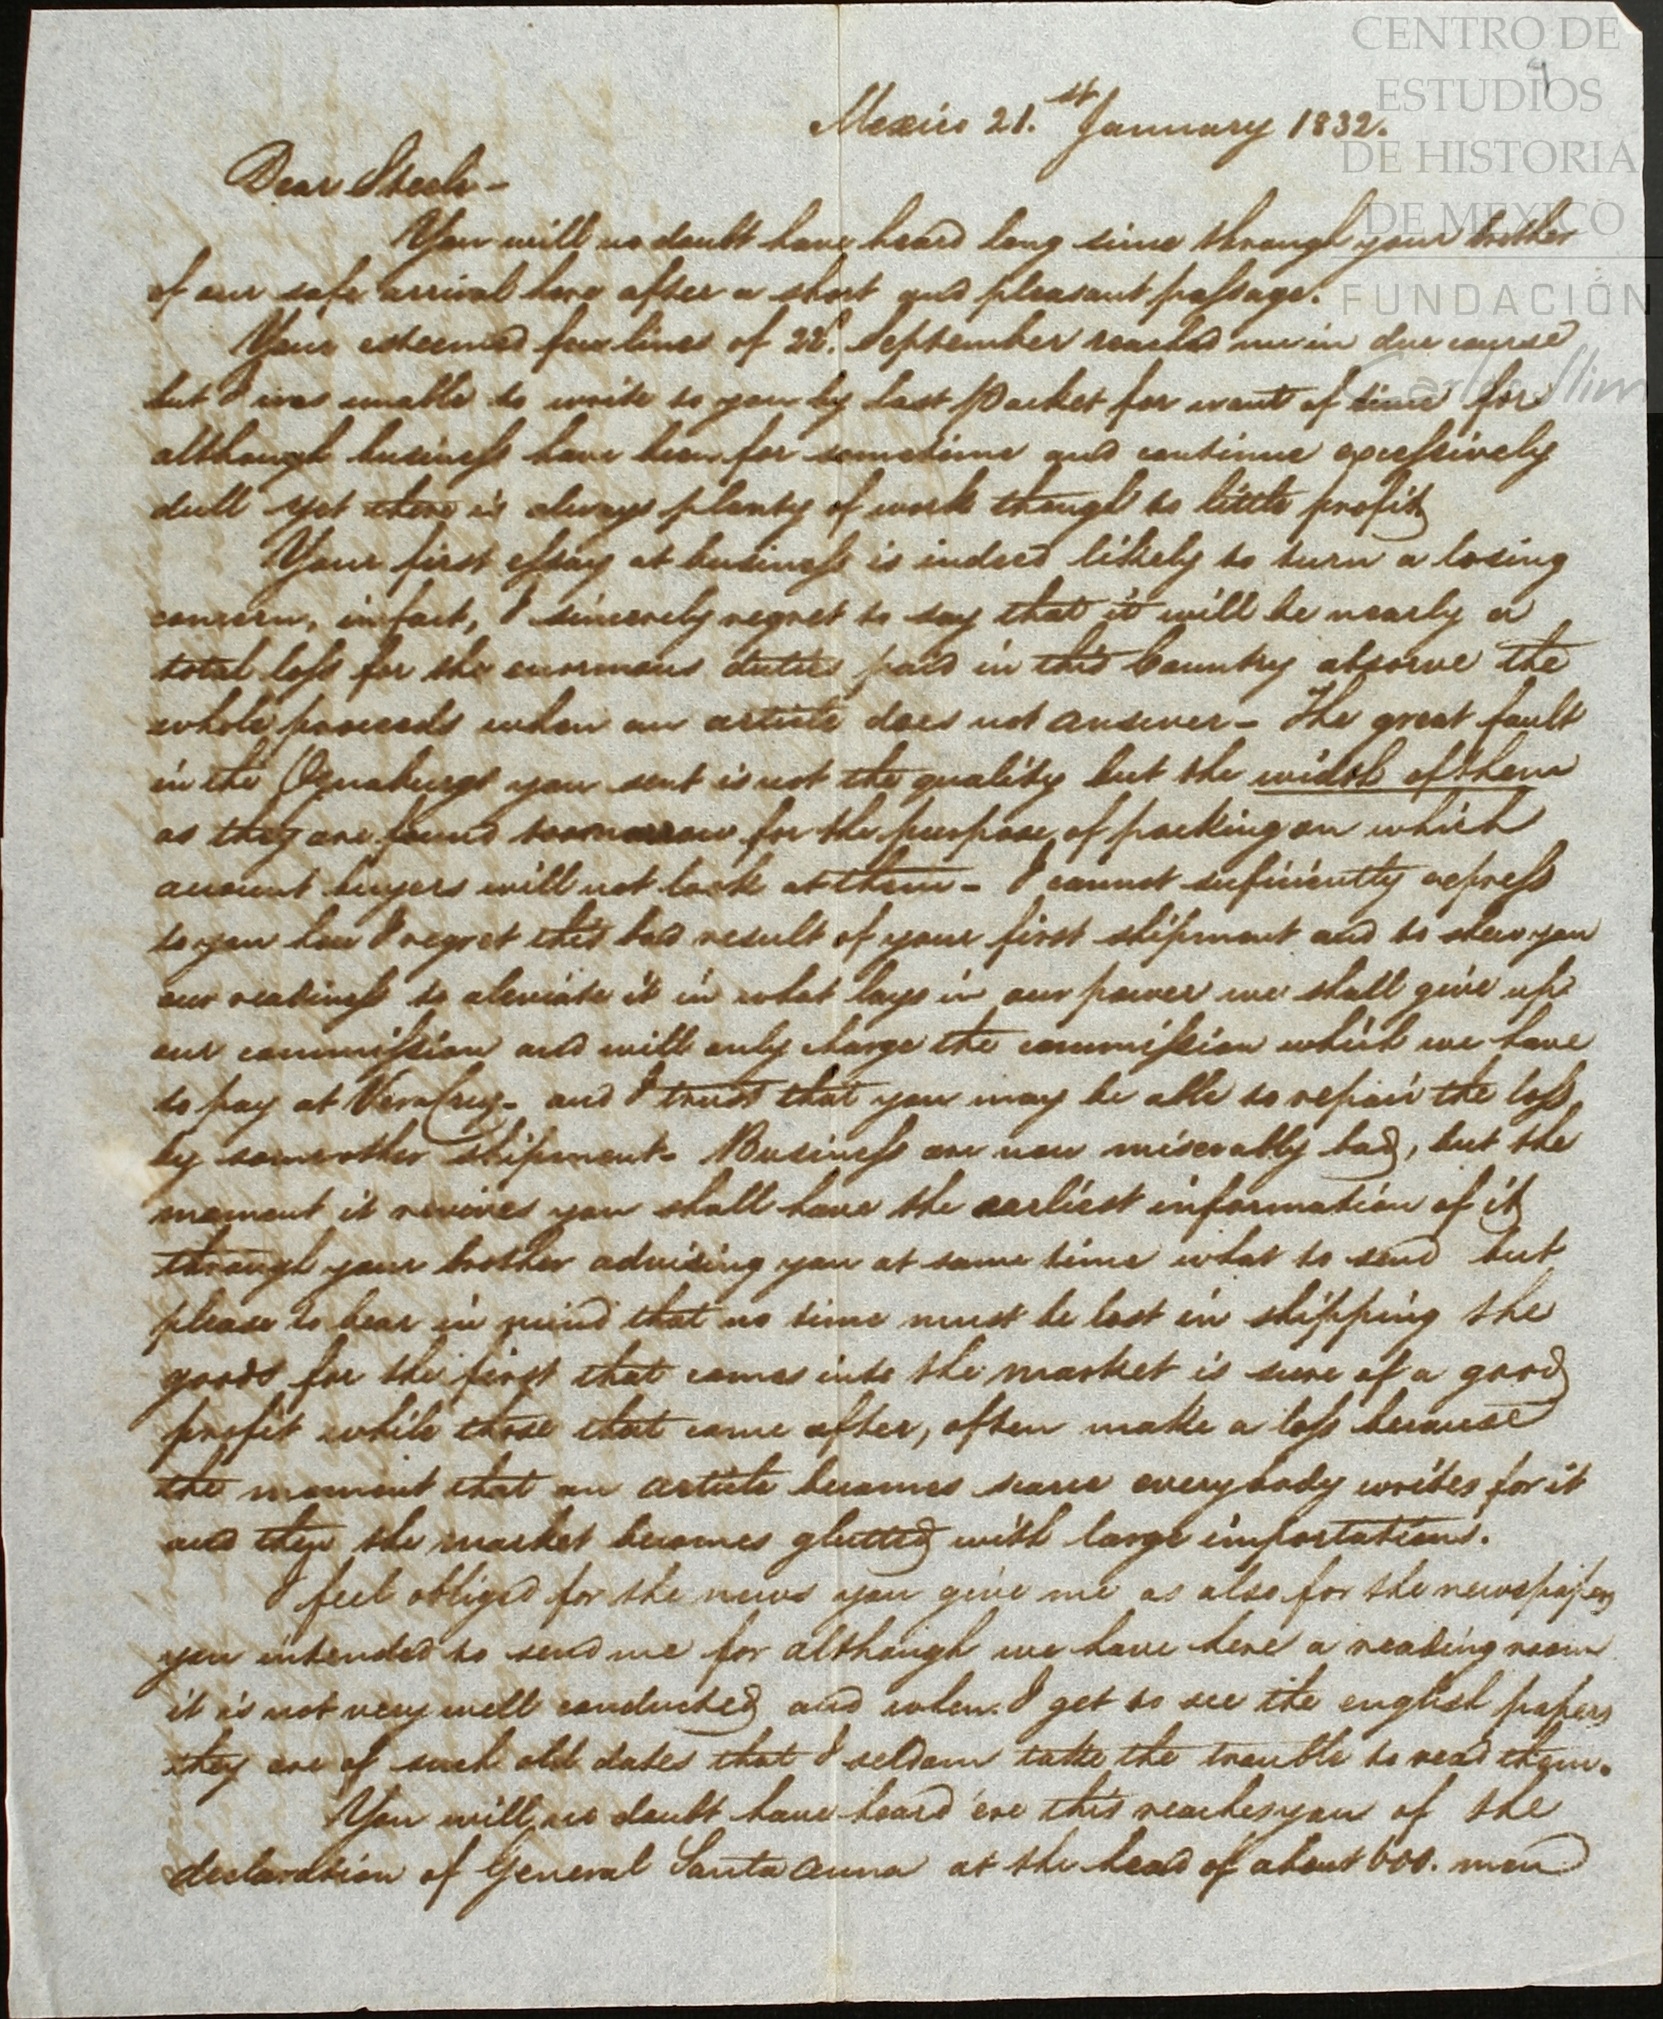 CENTRO DE
ESTUDIOS
DE HISTORIA
DE MEXICO
FUNDACIÓN
Carlos Slim
Mexico 21.st January 1832.
Dear Steele -
You will no doubt have heard long since through your brother
of our safe arrival here after a short and pleasant passage.
Your esteemed few lines of 22d. September reached me in due course
but I was unable to write to you by last Packet for want of time for
although business have been for sometime and continue excessively
dull yet there is always plenty of work though to little profit
Your first essay at business is indeed likely to turn a losing
concern, infact, I sincerely regret to say that it will be nearly a
total loss for the enormous duties paid in this Country absorve the
whole proceeds when an article does not answer - The great fault
in the Osnaburgs you sent is not the quality but the width of them
as they are found too narrow for the purpose of packing on which
account buyers will not look at them - I cannot suficiently express
to you how I regret this bad result of your first shipment and to shew you
our readiness to aleviate it in what lays in our power we shall give up
our commission and will only charge the commission which we have
to pay at VeraCruz - and I trust that you may be able to repair the loss
by some other shipment - Business are now miserably bad, but the
moment it revives you shall have the earliest information of it
through your brother advising you at same time what to send but
please to bear in mind that no time must be lost in shipping the
goods for the first that comes into the market is sure of a good
profit while those that come after, often make a loss because
the moment that an article becomes scarce everybody writes for it
and then the market becomes glutted with large importations.
I feel obliged for the news you give me as also for the newspapers
you intended to send me for although we have here a reading room
it is not very well conducted and when I get to see the english papers
they are of such old dates that I seldom take the trouble to read them.
You will no doubt have heard ere this reaches you of the
declaration of General Santa Anna at the head of about 600. men